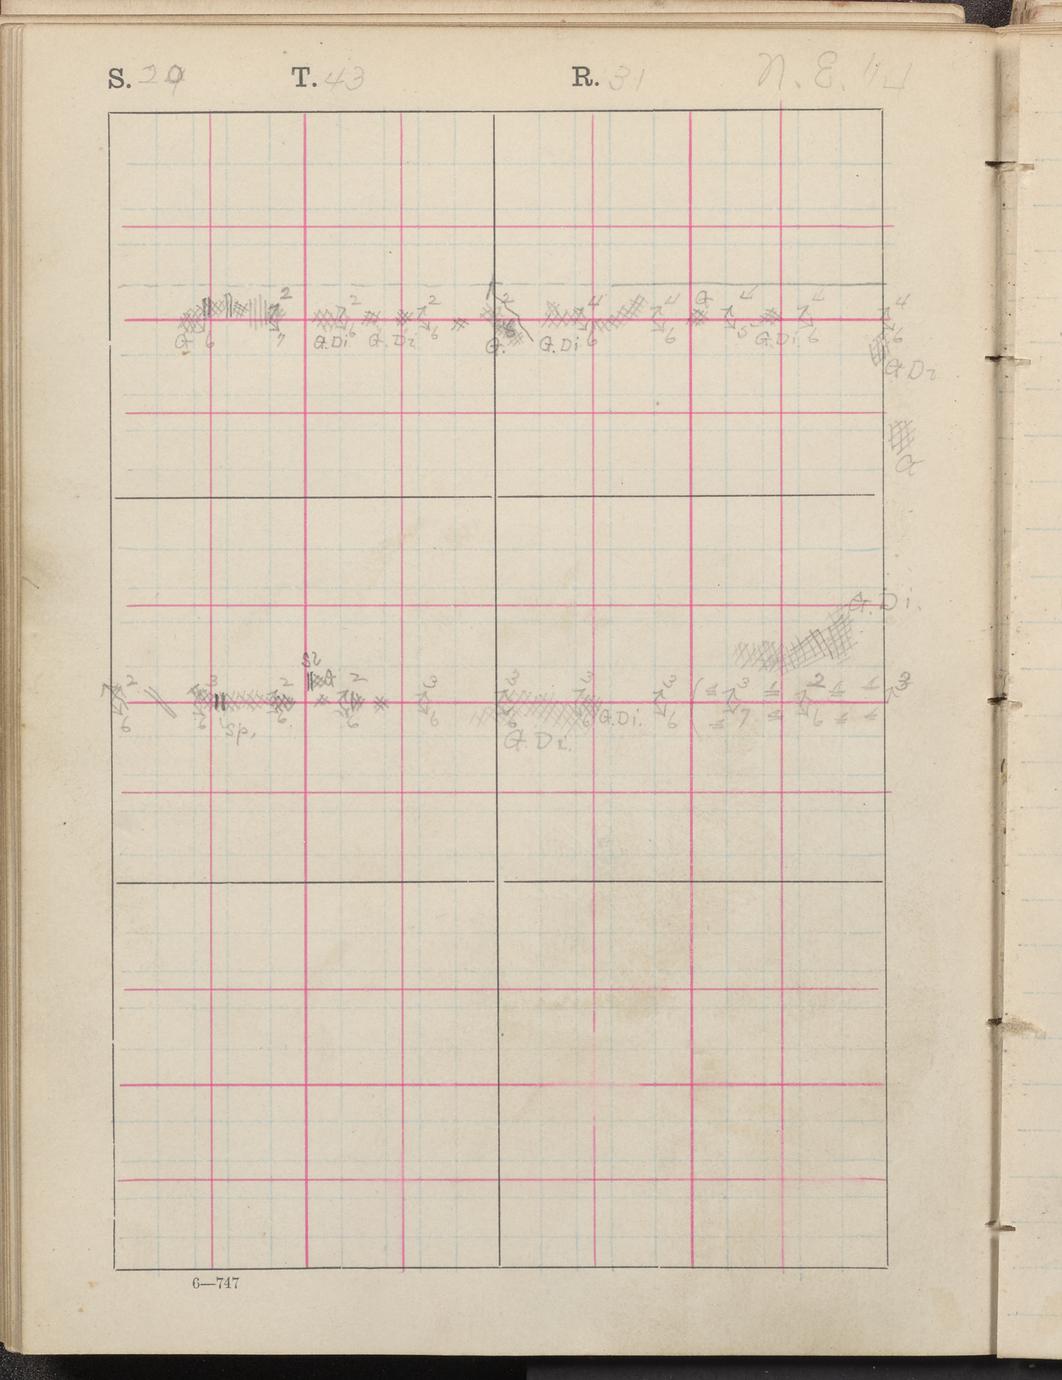 S. 29 T. 43 R. 31 N. E. 1/4
2 2 2 2 4 4 G 4 4 4
G 6 7 G.Di 6 G.Di 6 G. 8 G.Di 6 6 5 G.Di 6 6
G Di
G
G.Di.
Sl
2 3 2 G 2 3 3 3 3 3 2 3
6 6 Sp. 6 6 6 6 6 G.Di. 6 7 6
G.Di.
6—747